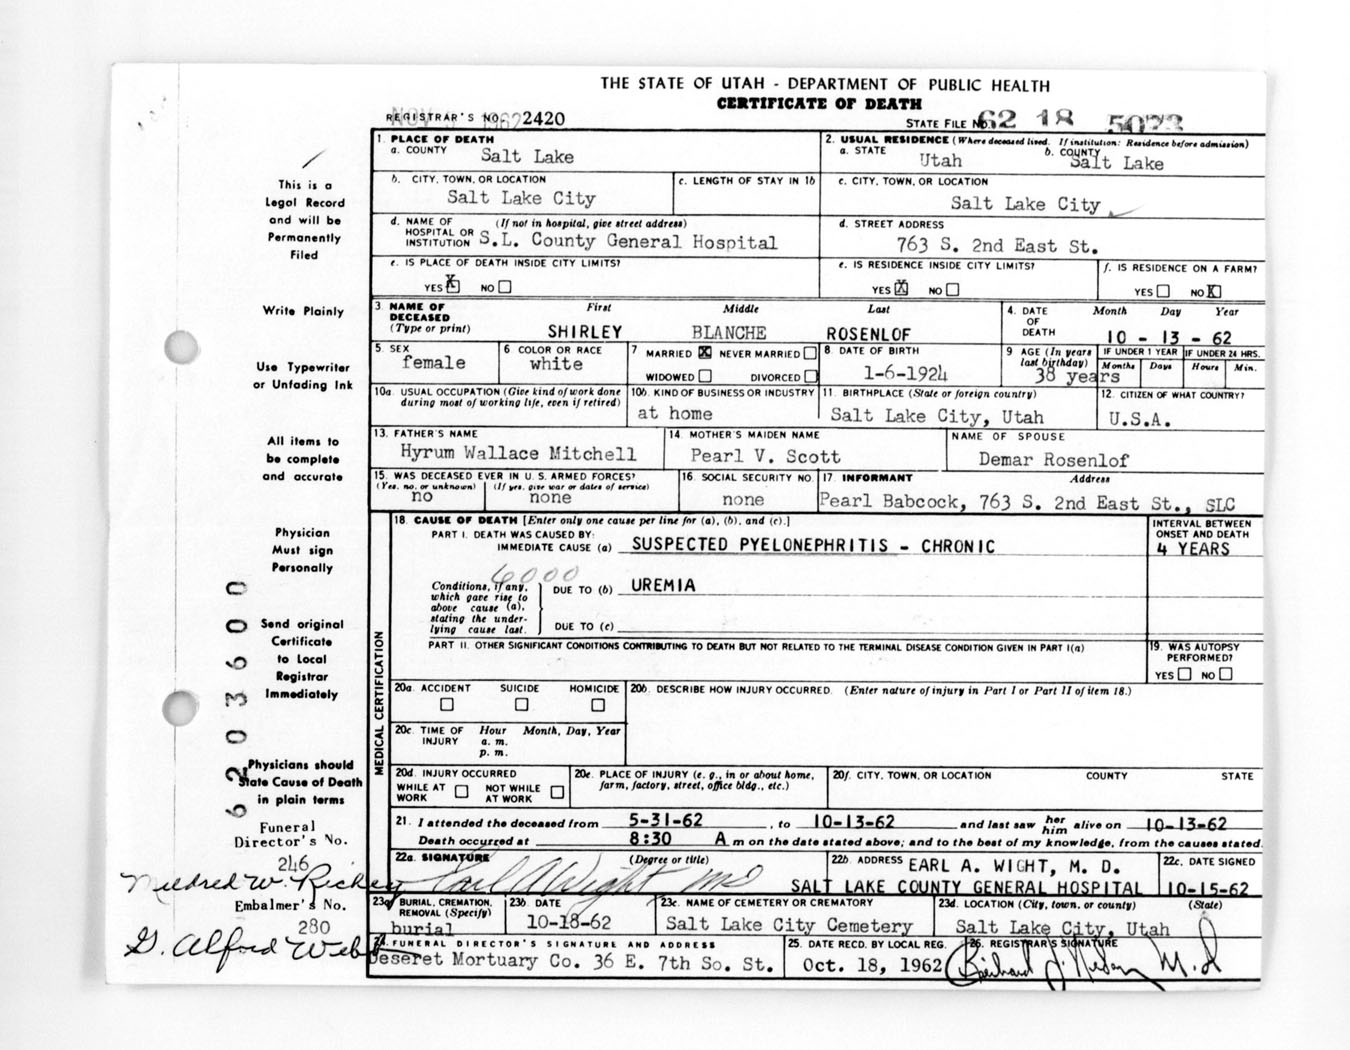 THE STATE OF UTAH - DEPARTMENT OF PUBLIC HEALTH
CERTIFICATE OF DEATH
NOV 5 1962
REGISTRAR'S NO. 2420
STATE FILE NO. 62 18 5073
1. PLACE OF DEATH
a. COUNTY Salt Lake
2. USUAL RESIDENCE (Where deceased lived. If institution: Residence before admission)
a. STATE Utah b. COUNTY Salt Lake
b. CITY, TOWN, OR LOCATION Salt Lake City
c. LENGTH OF STAY IN 1b
c. CITY, TOWN, OR LOCATION Salt Lake City
d. NAME OF HOSPITAL OR INSTITUTION (If not in hospital, give street address) S.L. County General Hospital
d. STREET ADDRESS 763 S. 2nd East St.
e. IS PLACE OF DEATH INSIDE CITY LIMITS? YES X NO
e. IS RESIDENCE INSIDE CITY LIMITS? YES X NO
f. IS RESIDENCE ON A FARM? YES NO X
3. NAME OF DECEASED (Type or print)
First Middle Last
SHIRLEY BLANCHE ROSENLOF
4. DATE OF DEATH Month Day Year
10 - 13 - 62
5. SEX female
6. COLOR OR RACE white
7 MARRIED X NEVER MARRIED
WIDOWED DIVORCED
8. DATE OF BIRTH 1-6-1924
9 AGE (In years last birthday) 38 years
IF UNDER 1 YEAR Months Days
IF UNDER 24 HRS. Hours Min.
10a. USUAL OCCUPATION (Give kind of work done during most of working life, even if retired)
10b. KIND OF BUSINESS OR INDUSTRY at home
11. BIRTHPLACE (State or foreign country) Salt Lake City, Utah
12. CITIZEN OF WHAT COUNTRY? U.S.A.
13. FATHER'S NAME Hyrum Wallace Mitchell
14. MOTHER'S MAIDEN NAME Pearl V. Scott
NAME OF SPOUSE Demar Rosenlof
15. WAS DECEASED EVER IN U. S. ARMED FORCES?
(Yes, no, or unknown) no
(If yes, give war or dates of service) none
16. SOCIAL SECURITY NO. none
17. INFORMANT Address
Pearl Babcock, 763 S. 2nd East St., SLC
MEDICAL CERTIFICATION
18. CAUSE OF DEATH [Enter only one cause per line for (a), (b), and (c).]
INTERVAL BETWEEN ONSET AND DEATH
PART I. DEATH WAS CAUSED BY:
IMMEDIATE CAUSE (a) SUSPECTED PYELONEPHRITIS - CHRONIC
4 YEARS
6000
Conditions, if any, which gave rise to above cause (a), stating the underlying cause last.
DUE TO (b) UREMIA
DUE TO (c)
PART II. OTHER SIGNIFICANT CONDITIONS CONTRIBUTING TO DEATH BUT NOT RELATED TO THE TERMINAL DISEASE CONDITION GIVEN IN PART I(a)
19. WAS AUTOPSY PERFORMED?
YES NO
20a. ACCIDENT SUICIDE HOMICIDE
20b. DESCRIBE HOW INJURY OCCURRED. (Enter nature of injury in Part I or Part II of item 18.)
20c. TIME OF INJURY Hour Month, Day, Year
a. m.
p. m.
20d. INJURY OCCURRED
WHILE AT WORK NOT WHILE AT WORK
20e. PLACE OF INJURY (e. g., in or about home, farm, factory, street, office bldg., etc.)
20f. CITY, TOWN, OR LOCATION COUNTY STATE
21. I attended the deceased from 5-31-62, to 10-13-62 and last saw her him alive on 10-13-62
Death occurred at 8:30 A m on the date stated above; and to the best of my knowledge, from the causes stated.
22a. SIGNATURE (Degree or title)
Earl A Wight MD
22b. ADDRESS EARL A. WIGHT, M. D.
SALT LAKE COUNTY GENERAL HOSPITAL
22c. DATE SIGNED 10-15-62
23a BURIAL, CREMATION, REMOVAL (Specify) burial
23b. DATE 10-18-62
23c. NAME OF CEMETERY OR CREMATORY Salt Lake City Cemetery
23d. LOCATION (City, town, or county) (State)
Salt Lake City, Utah
24. FUNERAL DIRECTOR'S SIGNATURE AND ADDRESS
Deseret Mortuary Co. 36 E. 7th So. St.
25. DATE RECD. BY LOCAL REG. Oct. 18, 1962
26. REGISTRAR'S SIGNATURE
M.D
This is a
Legal Record
and will be
Permanently
Filed
Write Plainly
Use Typewriter
or Unfading Ink
All items to
be complete
and accurate
Physician
Must sign
Personally
Send original
Certificate
to Local
Registrar
Immediately
Physicians should
State Cause of Death
in plain terms
62 03600
Funeral
Director's No.
246
Mildred W. Rickey
Embalmer's No.
280
G. Alford Webb